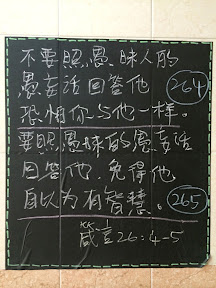 不要照愚昧人的
愚妄话回答他 264
恐怕你与他一样。
要照愚昧的愚妄话
回答他,免得他
自以为有智慧。 265
箴言26:4-5